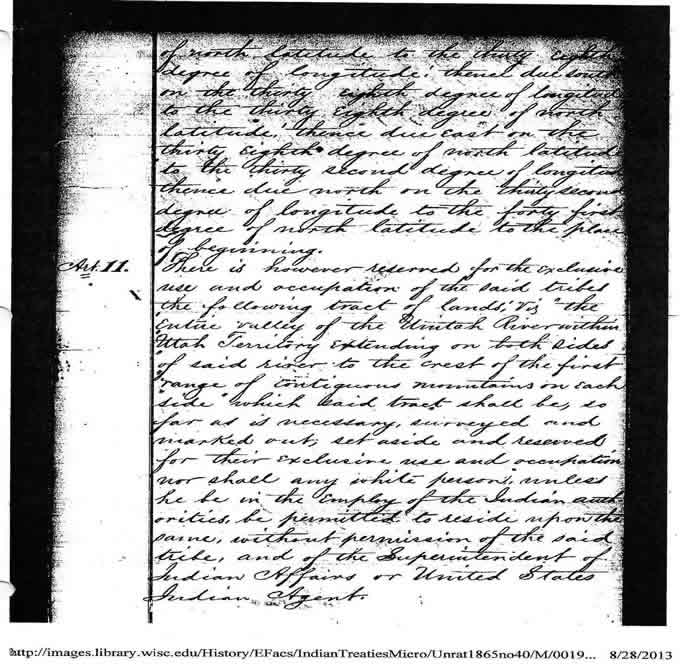 of north latitude to the thirty eighth
degree of longitude; thence due south
on the thirty eighth degree of longitud
to the thirty eighth degree of north
latitude, thence due East on the
thirty Eighth degree of north latitud
to the thirty second degree of longitud
thence due north on the thirty second
degree of longitude to the forty first
degree of north latitude to the place
of beginning.
Art. 11. There is however reserved for the exclusive
use and occupation of the said tribes
the following tract of lands, Viz "the
"Entire valley of the Uintah River within
"Utah Territory extending on both sides
"of said river to the crest of the first
"range of contiguous mountains on each
"side" which said tract shall be, so
far as is necessary, surveyed and
marked out, set aside and reserved
for their exclusive use and occupation
nor shall any white person, unless
he be in the employ of the Indian auth
orities, be permitted to reside upon the
same, without permission of the said
tribe, and of the Superintendent of
Indian Affairs or United States
Indian Agent.
http://images.library.wisc.edu/History/EFacs/IndianTreatiesMicro/Unrat1865no40/M/0019... 8/28/2013